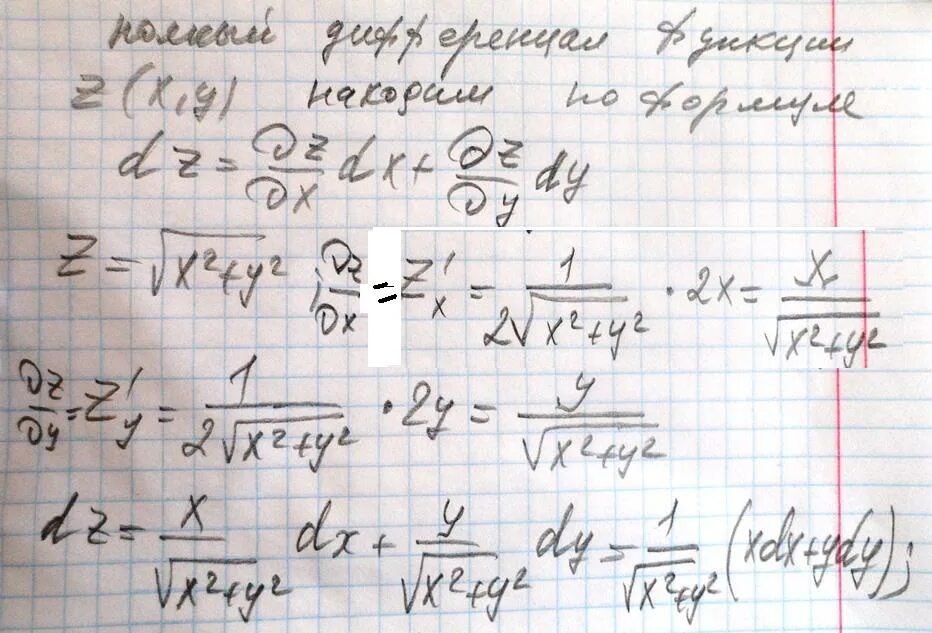 полный дифференциал функции
z(x,y) находим по формуле
dz = ∂z/∂x dx + ∂z/∂y dy
z = √(x²+y²) ; ∂z/∂x = z'ₓ = 1/(2√(x²+y²)) · 2x = x/√(x²+y²)
∂z/∂y = z'_y = 1/(2√(x²+y²)) · 2y = y/√(x²+y²)
dz = x/√(x²+y²) dx + y/√(x²+y²) dy = 1/√(x²+y²) (xdx+ydy);